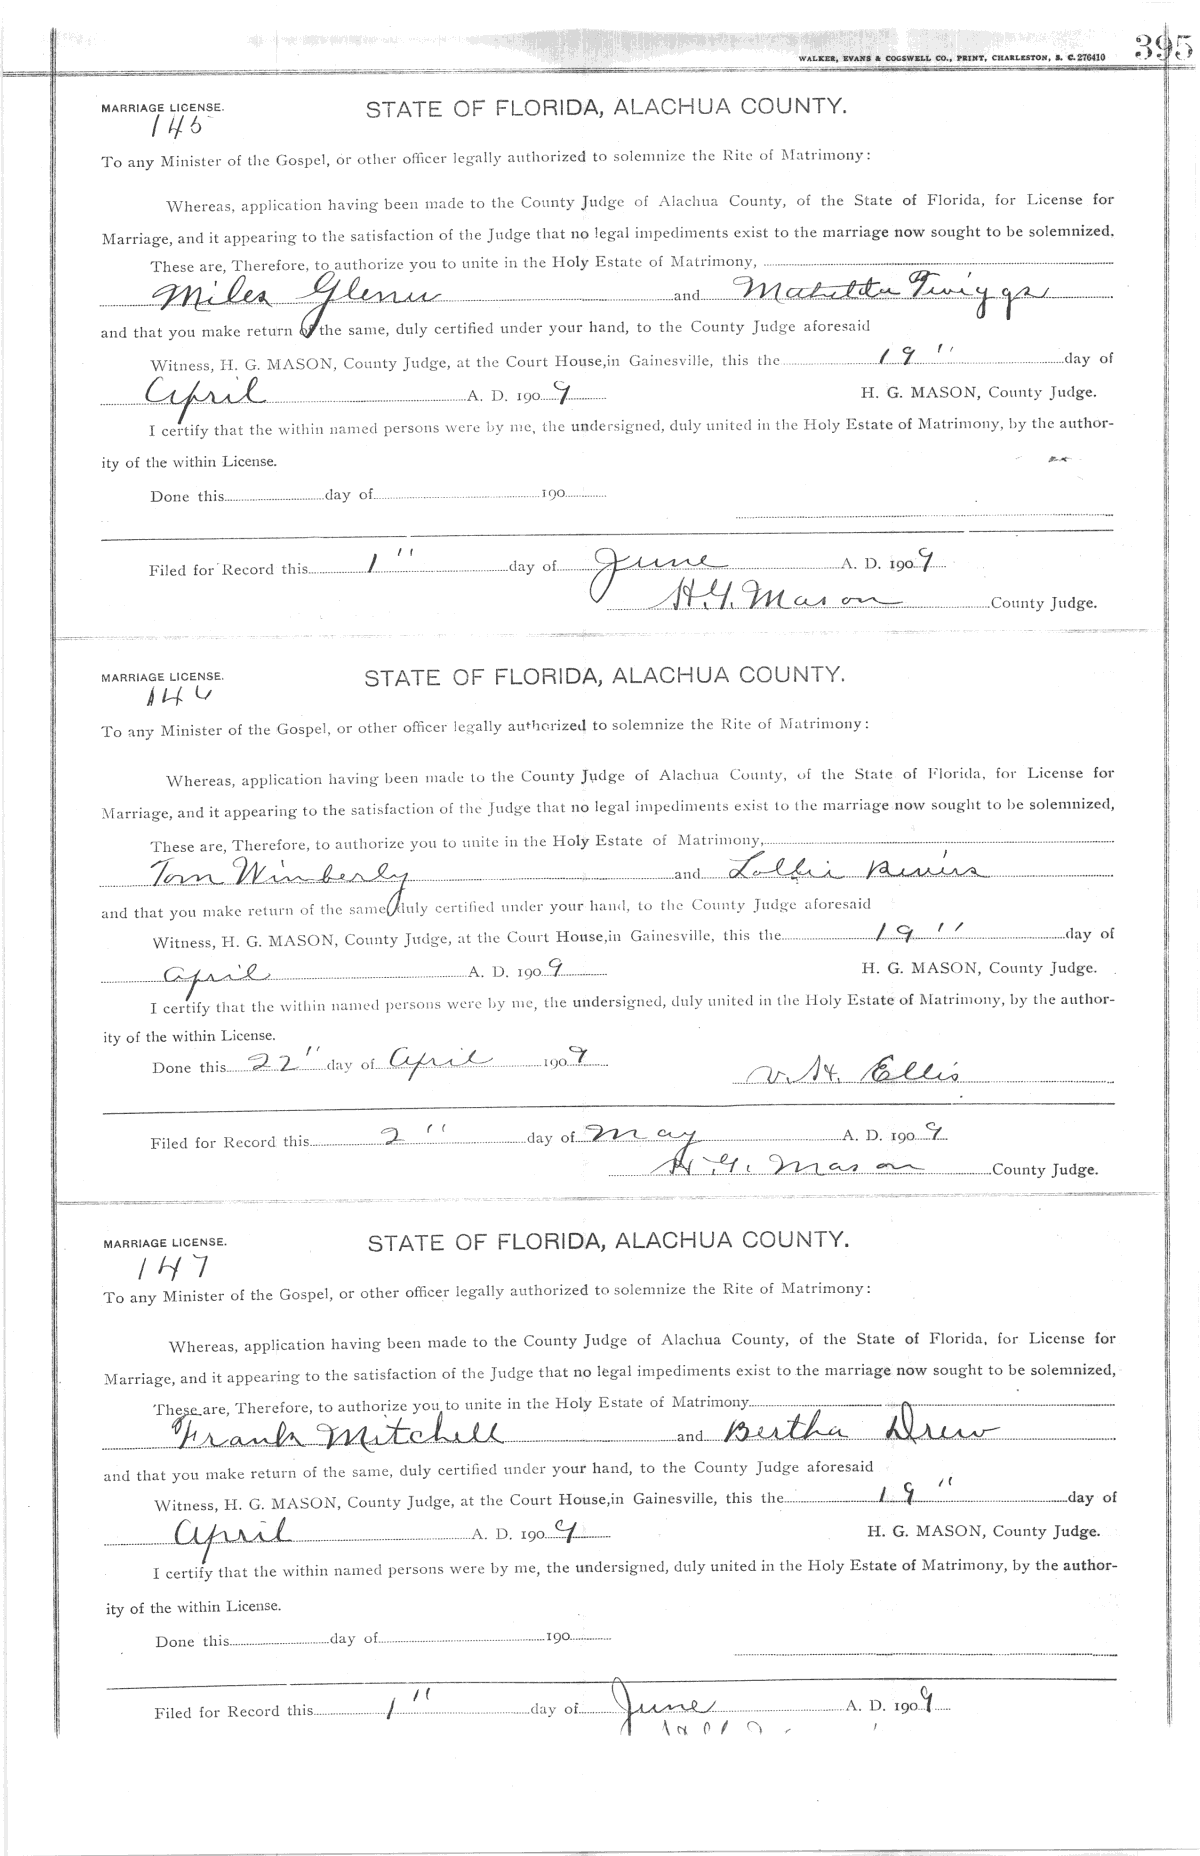 395
WALKER, EVANS & COGSWELL CO., PRINT, CHARLESTON, S. C. 276410
MARRIAGE LICENSE. STATE OF FLORIDA, ALACHUA COUNTY.
145
To any Minister of the Gospel, or other officer legally authorized to solemnize the Rite of Matrimony:
Whereas, application having been made to the County Judge of Alachua County, of the State of Florida, for License for
Marriage, and it appearing to the satisfaction of the Judge that no legal impediments exist to the marriage now sought to be solemnized,
These are, Therefore, to authorize you to unite in the Holy Estate of Matrimony,
Miles Glenn and Matilda Twiggs
and that you make return of the same, duly certified under your hand, to the County Judge aforesaid
Witness, H. G. MASON, County Judge, at the Court House, in Gainesville, this the 19" day of
April A. D. 1909 H. G. MASON, County Judge.
I certify that the within named persons were by me, the undersigned, duly united in the Holy Estate of Matrimony, by the author-
ity of the within License.
Done this day of 190
Filed for Record this 1" day of June A. D. 1909
H. G. Mason County Judge.
MARRIAGE LICENSE. STATE OF FLORIDA, ALACHUA COUNTY.
146
To any Minister of the Gospel, or other officer legally authorized to solemnize the Rite of Matrimony:
Whereas, application having been made to the County Judge of Alachua County, of the State of Florida, for License for
Marriage, and it appearing to the satisfaction of the Judge that no legal impediments exist to the marriage now sought to be solemnized,
These are, Therefore, to authorize you to unite in the Holy Estate of Matrimony,
Tom Wimberly and Lollie
and that you make return of the same, duly certified under your hand, to the County Judge aforesaid
Witness, H. G. MASON, County Judge, at the Court House, in Gainesville, this the 19" day of
April A. D. 1909 H. G. MASON, County Judge.
I certify that the within named persons were by me, the undersigned, duly united in the Holy Estate of Matrimony, by the author-
ity of the within License.
Done this 22" day of April 1909
V. H. Ellis
Filed for Record this 2" day of May A. D. 1909
H. G. Mason County Judge.
MARRIAGE LICENSE. STATE OF FLORIDA, ALACHUA COUNTY.
147
To any Minister of the Gospel, or other officer legally authorized to solemnize the Rite of Matrimony:
Whereas, application having been made to the County Judge of Alachua County, of the State of Florida, for License for
Marriage, and it appearing to the satisfaction of the Judge that no legal impediments exist to the marriage now sought to be solemnized,
These are, Therefore, to authorize you to unite in the Holy Estate of Matrimony
Frank Mitchell and Bertha Drew
and that you make return of the same, duly certified under your hand, to the County Judge aforesaid
Witness, H. G. MASON, County Judge, at the Court House, in Gainesville, this the 19" day of
April A. D. 1909 H. G. MASON, County Judge.
I certify that the within named persons were by me, the undersigned, duly united in the Holy Estate of Matrimony, by the author-
ity of the within License.
Done this day of 190
Filed for Record this 1" day of June A. D. 1909